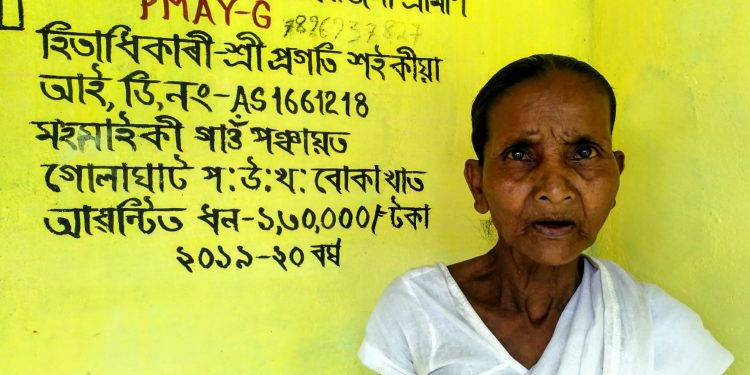 PMAY-G
গ্ৰামীণ
7896737827
হিতাধিকাৰী-শ্ৰী প্ৰগতি শইকীয়া
আই, ডি, নং-AS1661218
মহমাইকী গাওঁ পঞ্চায়ত
গোলাঘাট প:উ:খ: বোকাখাত
আৱন্টিত ধন-১,৩০,০০০/-টকা
২০১৯-২০ বৰ্ষ